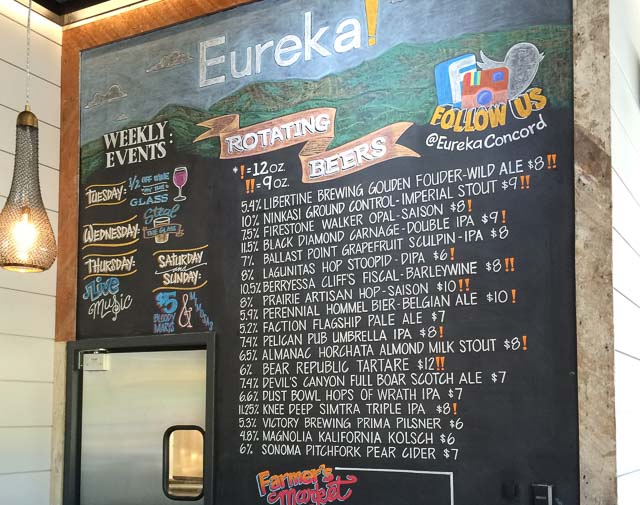 Eureka!
FOLLOW US
@EurekaConcord
WEEKLY
EVENTS
TUESDAY: 1/2 OFF WINE
BY THE
GLASS
WEDNESDAY: Steal
THE GLASS
THURSDAY:
Live
Music
SATURDAY
and
SUNDAY:
$5
BLOODY
MARYS
&
MIMOSAS
ROTATING
BEERS
*!=12OZ.
!!=9OZ.
5.4% LIBERTINE BREWING GOUDEN FOUDER-WILD ALE $8!!
10% NINKASI GROUND CONTROL-IMPERIAL STOUT $9!!
7.5% FIRESTONE WALKER OPAL-SAISON $8!
11.5% BLACK DIAMOND CARNAGE-DOUBLE IPA $9!
7% BALLAST POINT GRAPEFRUIT SCULPIN-IPA $8
8% LAGUNITAS HOP STOOPID-DIPA $6!
10.5% BERRYESSA CLIFFS FISCAL-BARLEYWINE $8!!
8% PRAIRIE ARTISAN HOP-SAISON $10!!
5.9% PERENNIAL HOMMEL BIER-BELGIAN ALE $10!
5.2% FACTION FLAGSHIP PALE ALE $7
7.4% PELICAN PUB UMBRELLA IPA $8!
6.5% ALMANAC HORCHATA ALMOND MILK STOUT $8!
6% BEAR REPUBLIC TARTARE $12!!
7.4% DEVIL'S CANYON FULL BOAR SCOTCH ALE $7
6.6% DUST BOWL HOPS OF WRATH IPA $7
11.25% KNEE DEEP SIMTRA TRIPLE IPA $8!
5.3% VICTORY BREWING PRIMA PILSNER $6
4.8% MAGNOLIA KALIFORNIA KOLSCH $6
6% SONOMA PITCHFORK PEAR CIDER $7
Farmer's
Market